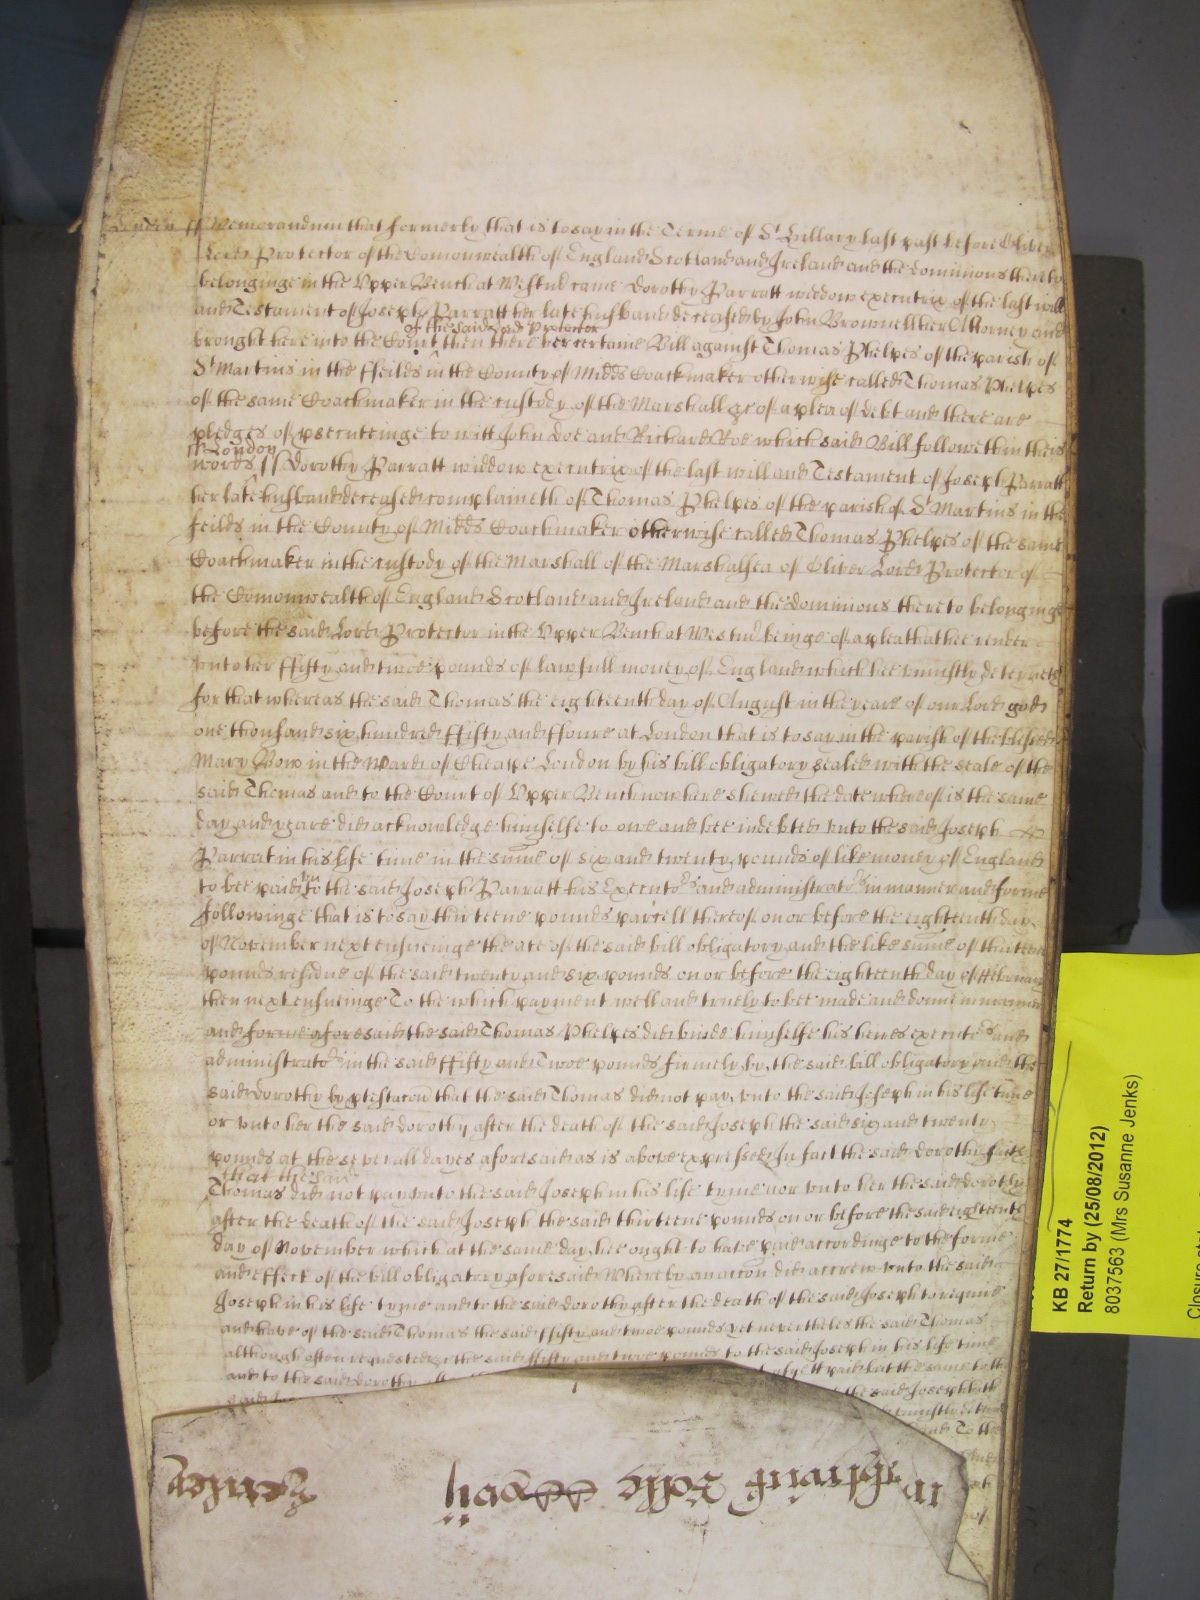 London ss Memorandum that formerly that is to say in the Terme of St Hillary last past before Oliver
Lord Protector of the Comonwealth of England Scotland and Ireland and the dominions thereto
belonginge in the Upper Bench at Westmr came Dorothy Parratt widdow executrix of the last will
and Testament of Joseph Parratt her late husband deceased by John Brownell her Attorney and
of the said Lord Protector
brought here into the Court then there her certaine Bill against Thomas Phelpes of the parish of
St Martins in the ffeilds in the County of Midds Coachmaker otherwise called Thomas Phelpes
of the same Coachmaker in the custody of the Marshall &c of a plea of debt and there are
pledges of psecuteinge to witt John Doe and Richard Roe which said Bill followeth in theis
ss London
words ss Dorothy Parratt widdow executrix of the last will and Testament of Joseph Parratt
her late husband deceased complaineth of Thomas Phelpes of the parish of St Martins in the
feilds in the County of Midds Coachmaker otherwise called Thomas Phelpes of the same
Coachmaker in the custody of the Marshall of the Marshalsea of Oliver Lord Protector of
the Comonwealth of England Scotland and Ireland and the dominions thereto belonginge
before the said Lord Protector in the Upper Bench at Westmr beinge of a plea that hee render
unto her ffifty and twoe pounds of lawfull money of England which hee uniustly deteyneth
for that whereas the said Thomas the eighteenth day of August in the yeare of our Lord god
one thousand six hundred ffifty and ffoure at London that is to say in the parish of the blessed
Mary Bow in the Ward of Cheape London by his bill obligatory sealed with the seale of the
said Thomas and to the Court of Upper Bench now here shewed the date whereof is the same
day and yeare did acknowledge himselfe to owe and bee indebted unto the said Joseph
Parrat in his life time in the summe of six and twenty pounds of like money of England
to bee paid to the said Joseph Parratt his Executors and administrators in manner and forme
followinge that is to say thirteene pounds parcell thereof on or before the eighteenth day
of November next ensueinge the date of the said bill obligatory and the like summe of thirteene
pounds residue of the said twenty and six pounds on or before the eighteenth day of ffebruary
then next ensueinge To the which payment well and truely to bee made and donne in manner
and forme aforesaid the said Thomas Phelpes did binde himselfe his heires executors and
administrators in the said ffifty and Twoe pounds firmely by the said bill obligatory and the
said Dorothy by ptestacon that the said Thomas did not pay unto the said Joseph in his life time
or unto her the said dorothy after the death of the said Joseph the said six and twenty
pounds at the severall dayes aforesaid as is above expressed In fact the said dorothy saith
that the said
Thomas did not pay unto the said Joseph in his life tyme nor unto her the said dorothy
after the death of the said Joseph the said thirteene pounds on or before the said eighteenth
day of November which at the same day hee ought to have paid accordinge to the forme
and effect of the bill obligatory aforesaid Whereby an accon did accrew unto the said
Joseph in his life tyme and to the said dorothy after the death of the said Joseph to require
and have of the said Thomas the said ffifty and twoe pounds yet neverthelesse the said Thomas
although often requested the said ffifty and twoe pounds to the said Joseph in his life time
and to the said dorothy yett paid but the same to the
said the said Joseph hath
uniustly
and To the
KB 27/1774
Return by (25/08/2012)
8037563 (Mrs Susanne Jenks)
Closure